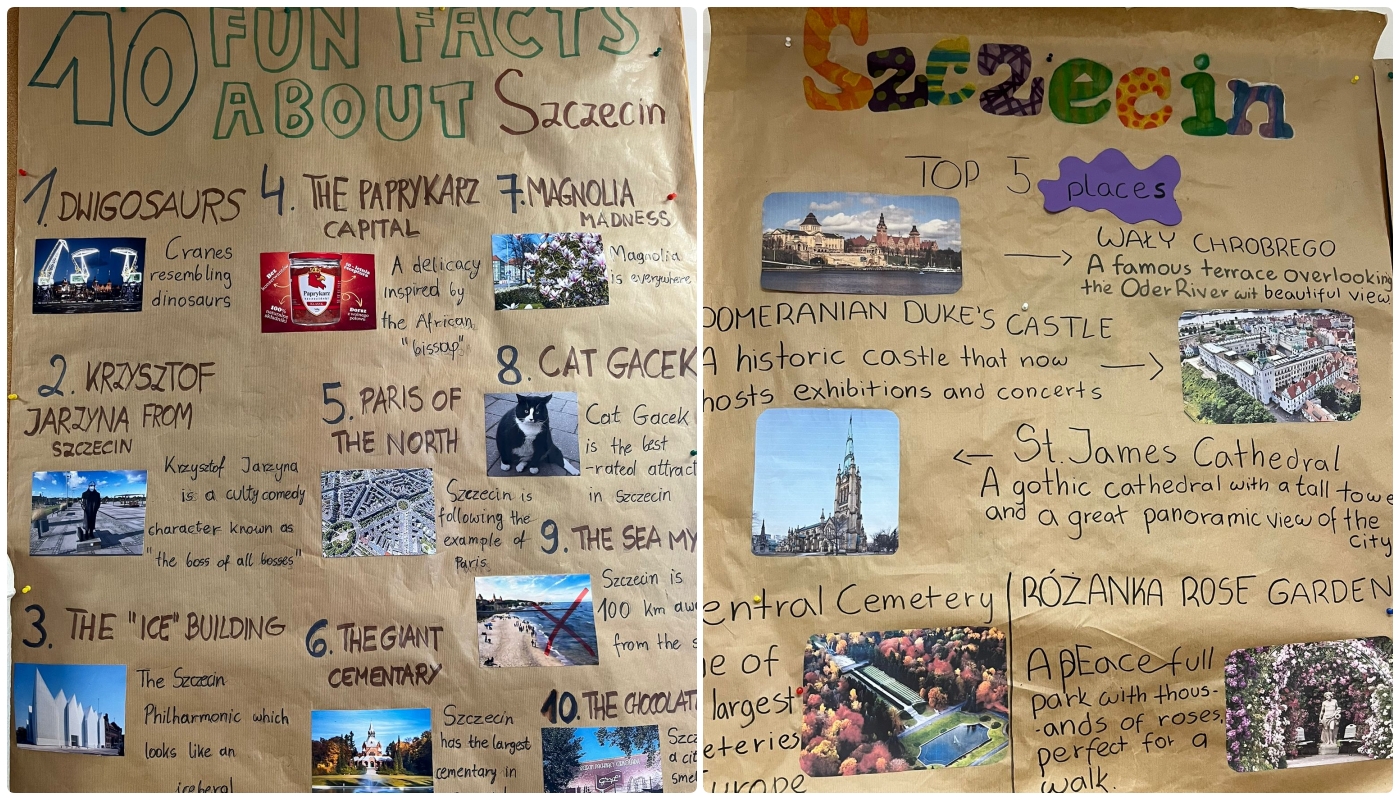 10 FUN FACTS
ABOUT Szczecin
1. DWIGOSAURS
Cranes
resembling
dinosaurs
2. KRZYSZTOF
JARZYNA FROM
SZCZECIN
Krzysztof Jarzyna
is a culty comedy
character known as
"the boss of all bosses"
3. THE "ICE" BUILDING
The Szczecin
Philharmonic which
looks like an
4. THE PAPRYKARZ
CAPITAL
Paprykarz
100%
A delicacy
inspired by
the African
"bissap"
5. PARIS OF
THE NORTH
Szczecin is
following the
example of
Paris.
6. THE GIANT
CEMENTARY
Szczecin
has the largest
cementary in
7. MAGNOLIA
MADNESS
Magnolia
is everywhere
8. CAT GACEK
Cat Gacek
is the best
-rated attract
in szczecin
9. THE SEA MY
Szczecin is
100 km awa
from the s
10. THE CHOCOLAT
Szcz
a cit
smel
Szczecin
TOP 5 places
WAŁY CHROBREGO
A famous terrace overlooking
the Oder River wit beautiful view
POMERANIAN DUKE'S CASTLE
A historic castle that now
hosts exhibitions and concerts
St. James Cathedral
A gothic cathedral with a tall towe
and a great panoramic view of the
city
entral Cemetery
ne of
largest
eteries
Europe
RÓŻANKA ROSE GARDEN
A pEacefull
park with thous-
-ands of roses,
perfect for a
walk.